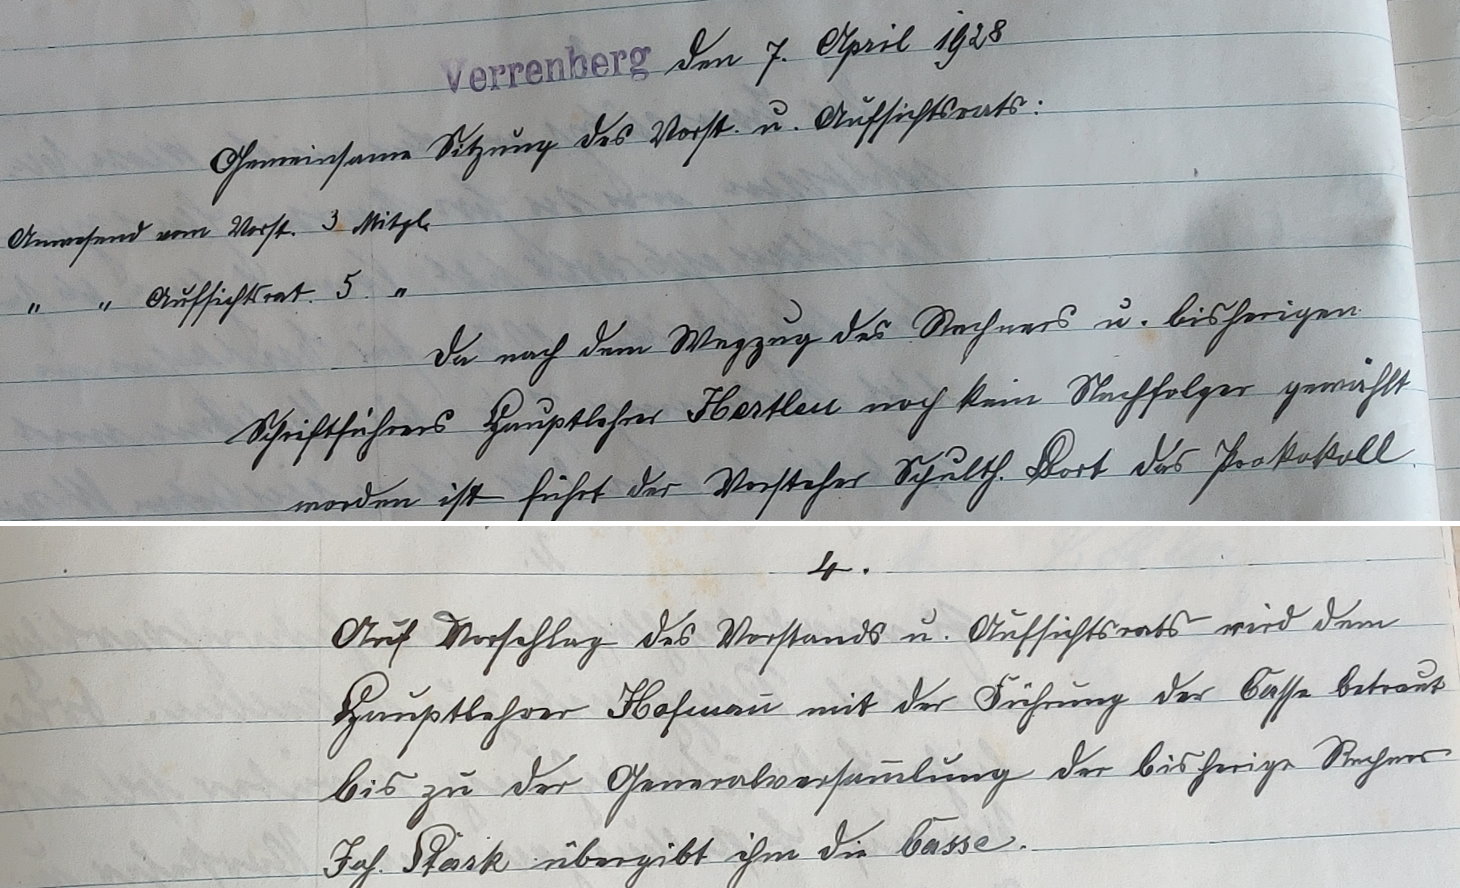 Verrenberg den 7. April 1928
Gemeinsame Sitzung des Vorst. u. Aufsichtsrats:
Anwesend vom Vorst. 3 Mitgl.
" " Aufsichtsrat. 5 "
Da nach dem Wegzug des Rechners u. bisherigen
Schriftführers Hauptlehrer Hertlen noch kein Nachfolger gewählt
worden ist führt der Vorsteher Schulth. Dort das Protokoll
4.
Auf Vorschlag des Vorstands u. Aufsichtsrats wird dem
Hauptlehrer Hofmañ mit der Führung der Casse betraut
bis zu der Generalversam̄lung der bisherige Rechner
Joh. Stark übergibt ihm die Casse.